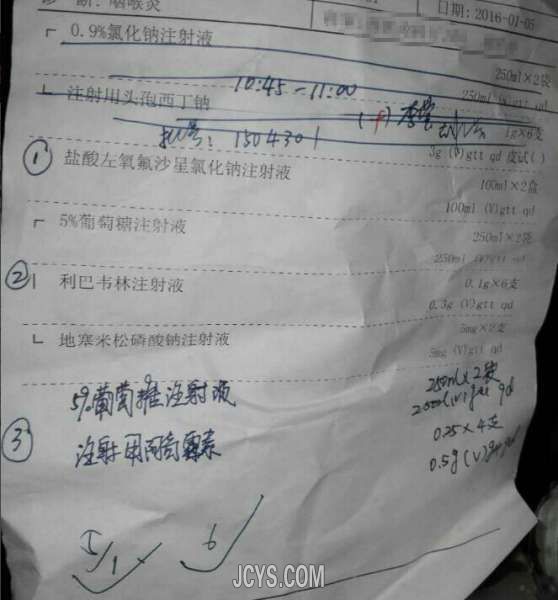 诊 断：咽喉炎
日期：2016-01-05
┌ 0.9%氯化钠注射液
250ml×2袋
10:45-11:00
250ml (V)gtt qd
└ 注射用头孢西丁钠
1g×6支
批号：1504301
(+)
3g (V)gtt qd 皮试( )
① 盐酸左氧氟沙星氯化钠注射液
100ml×2盒
100ml (V)gtt qd
┌ 5%葡萄糖注射液
250ml×2袋
250ml (V)gtt qd
② | 利巴韦林注射液
0.1g×6支
0.3g (V)gtt qd
└ 地塞米松磷酸钠注射液
5mg×2支
5mg (V)gtt qd
5%葡萄糖注射液
250ml×2袋
250ml (V)gtt qd
③ 注射用阿奇霉素
0.25×4支
0.5g (V)gtt qd
5/1 6
JCYS.COM